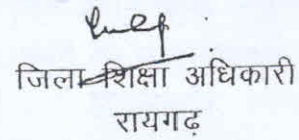 जिला शिक्षा अधिकारी
रायगढ़